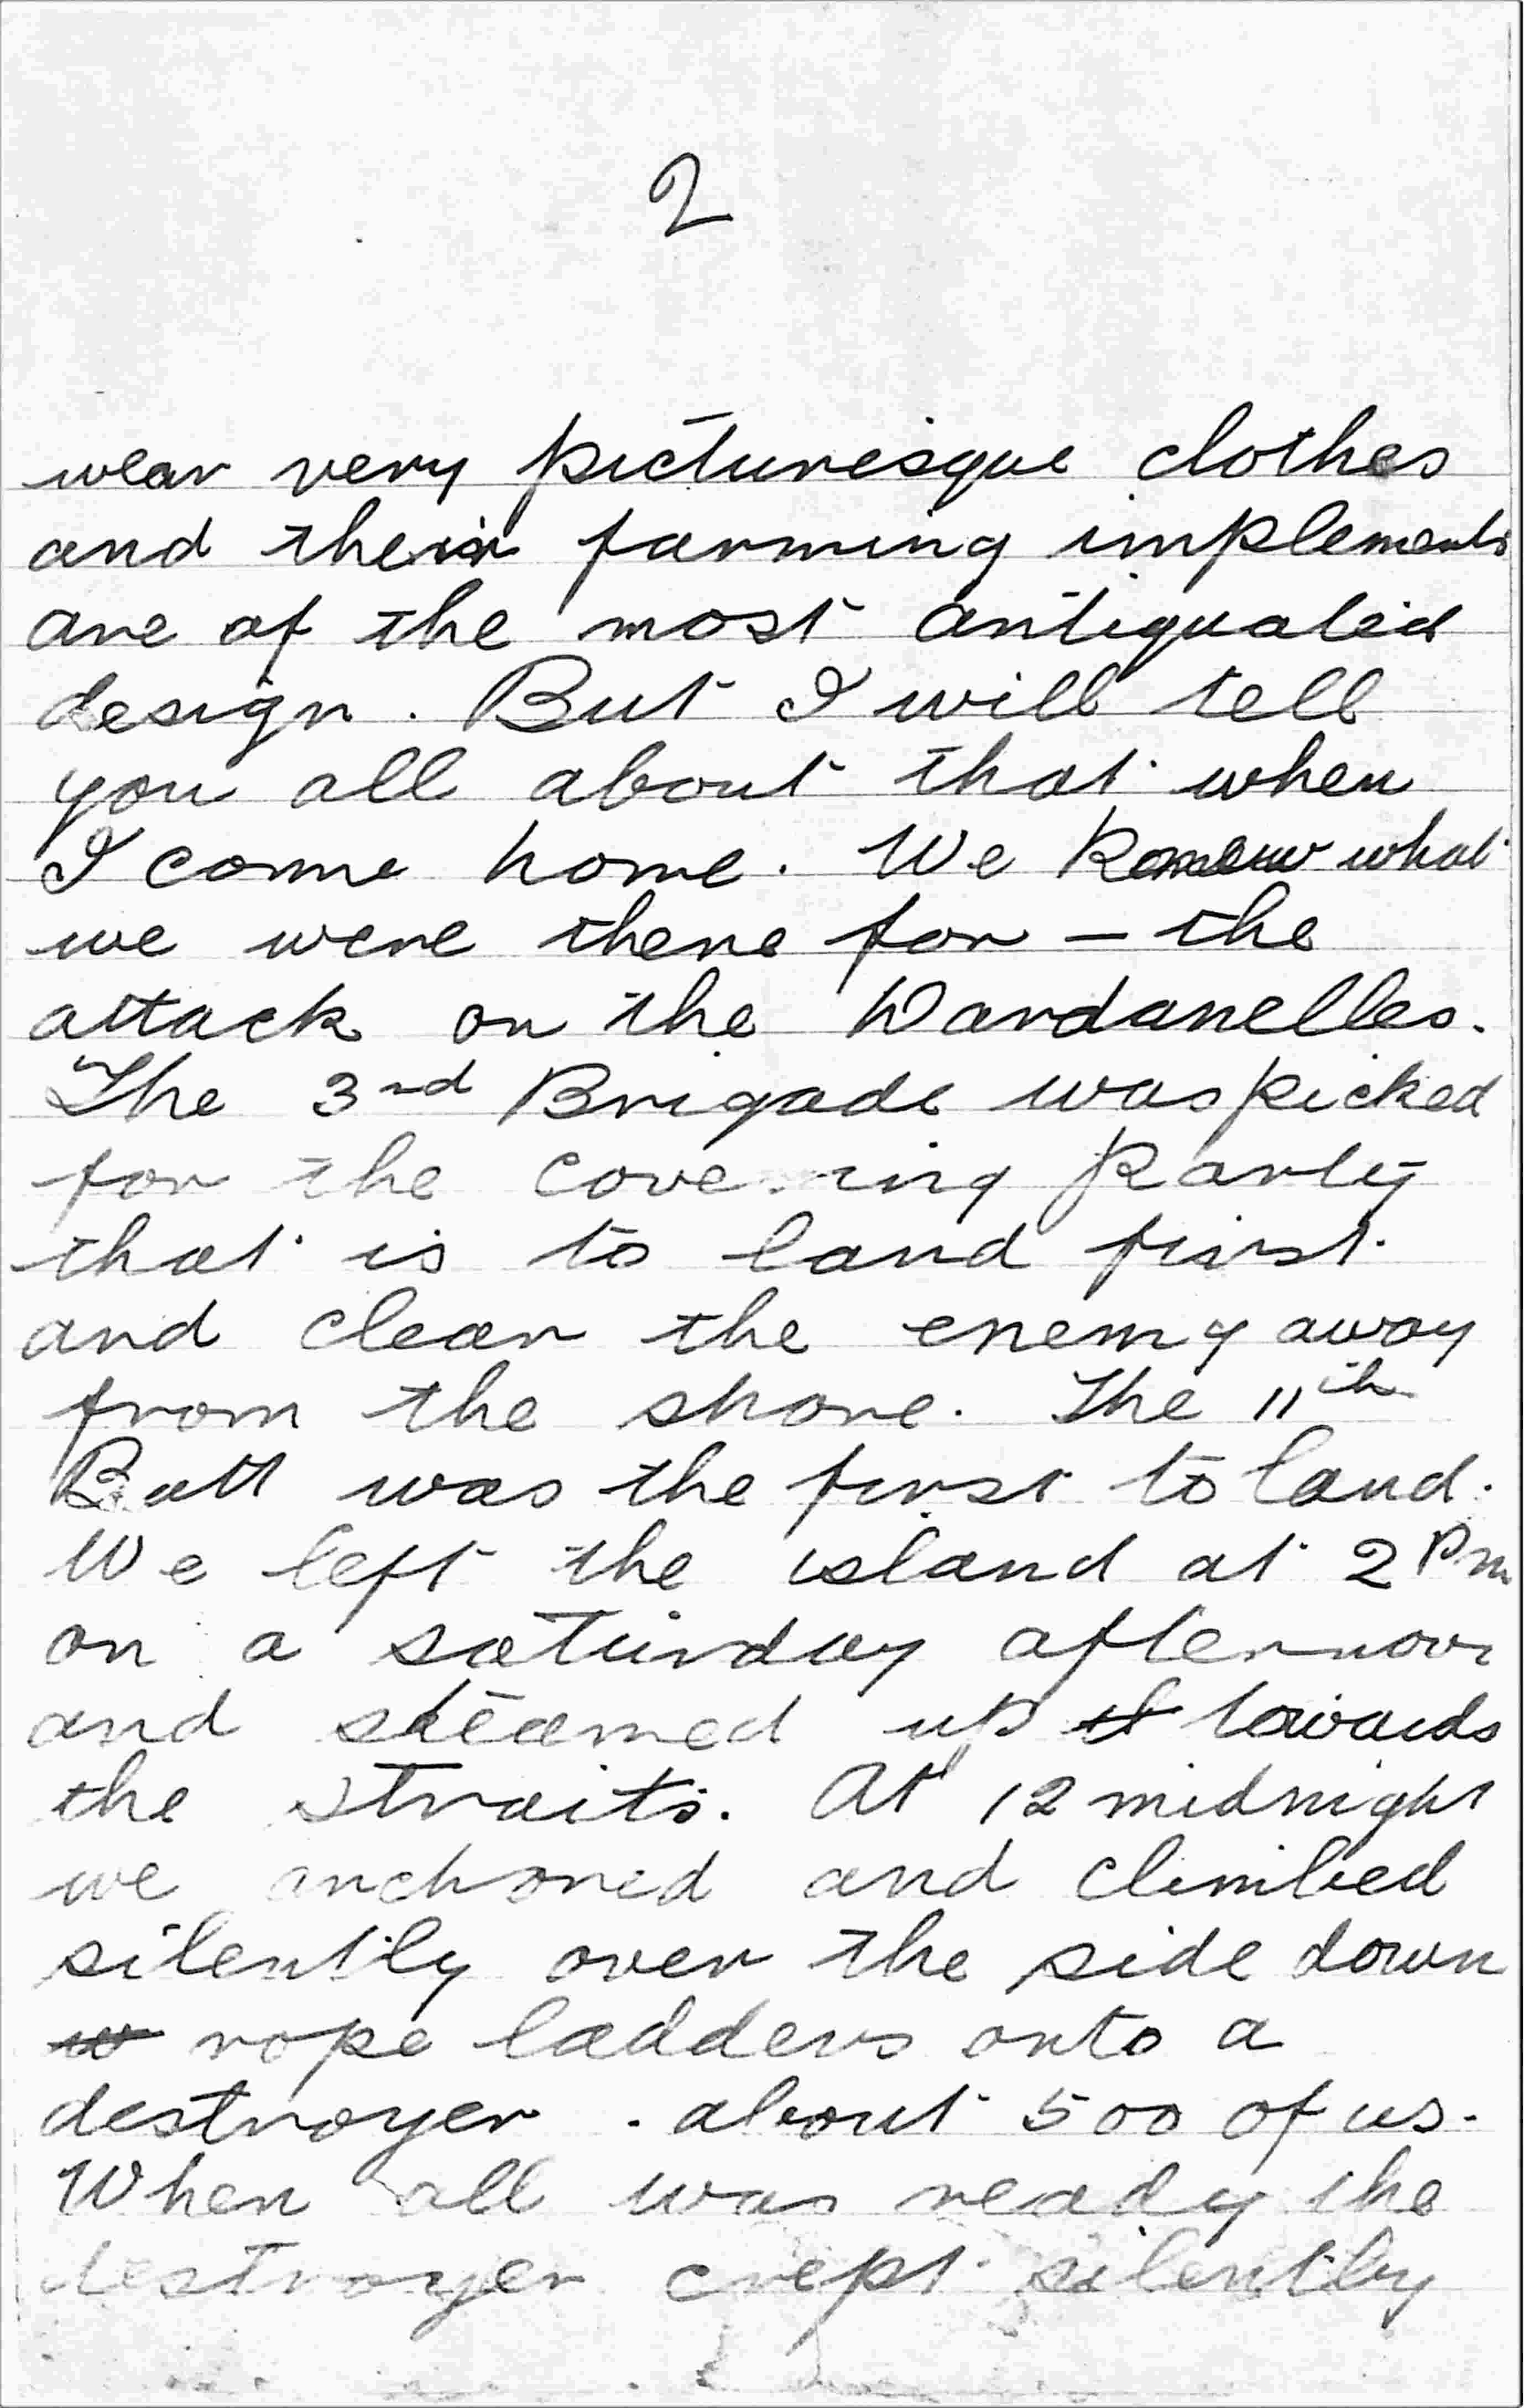 2
wear very picturesque clothes
and their farming implements
are of the most antiquated
design. But I will tell
you all about that when
I come home. We knew what
we were there for - the
attack on the Dardanelles.
The 3rd Brigade was picked
for the covering party
that is to land first
and clear the enemy away
from the shore. The 11th
Batt was the first to land.
We left the island at 2 Pm
on a saturday afternoon
and steamed up towards
the straits. At 12 midnight
we anchored and climbed
silently over the side down
rope ladders onto a
destroyer. about 500 of us.
When all was ready the
destroyer crept silently